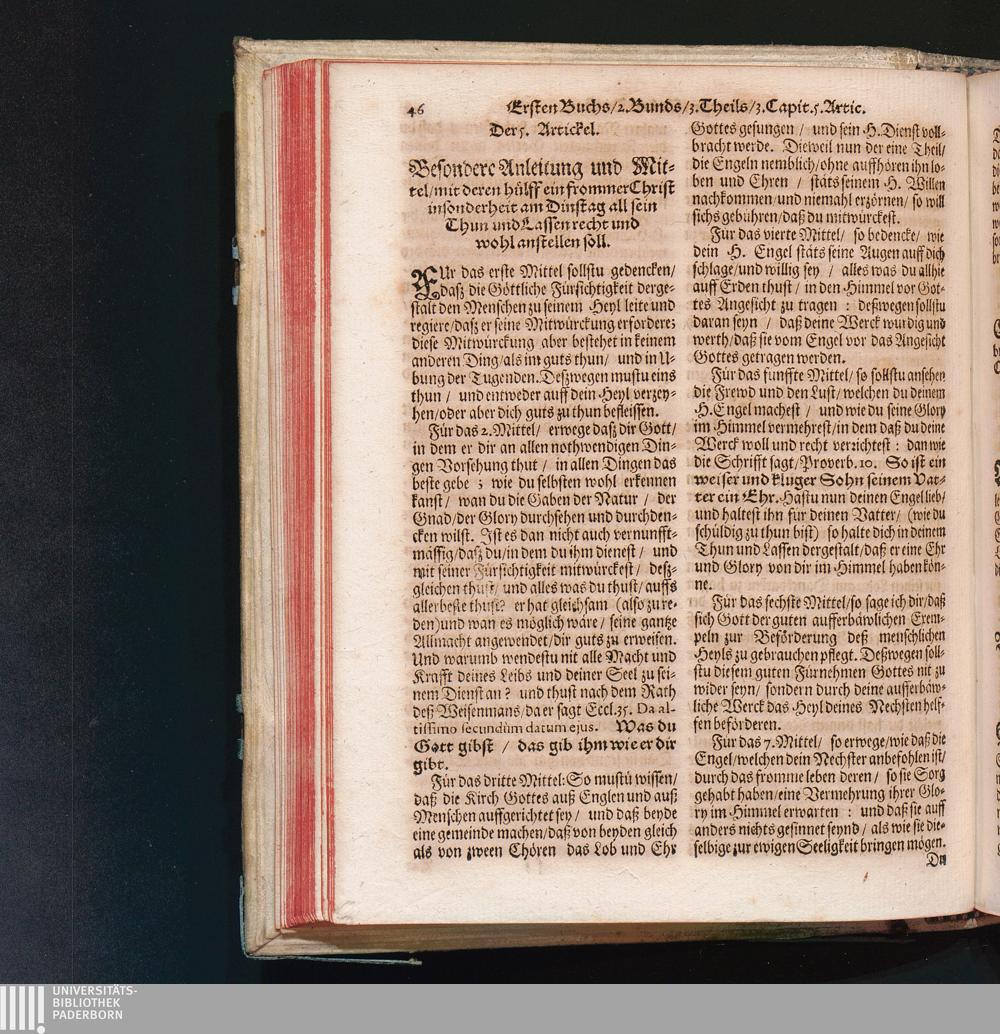 46
Ersten Buchs/2.Bunds/3.Theils/3.Capit.5.Artic.
Der 5. Artickel.
Besondere Anleitung und Mit-
tel/mit deren hülff ein frommer Christ
insonderheit am Dinstag all sein
Thun und Lassen recht und
wohl anstellen soll.
FUr das erste Mittel sollstu gedencken/
daß die Göttliche Fürsichtigkeit derge-
stalt den Menschen zu seinem Heyl leite und
regiere/daß er seine Mitwürckung erfordere:
diese Mitwürckung aber bestehet in keinem
anderen Ding/als im guts thun/ und in U-
bung der Tugenden. Deßwegen mustu eins
thun / und entweder auff dein Heyl verzey-
hen/oder aber dich guts zu thun befleissen.
Für das 2. Mittel/ erwege daß dir Gott/
in dem er dir an allen nothwendigen Din-
gen Vorsehung thut / in allen Dingen das
beste gebe ; wie du selbsten wohl erkennen
kanst/ wan du die Gaben der Natur / der
Gnad/der Glory durchsehen und durchden-
cken wilst. Ist es dan nicht auch vernunfft-
mäffig/daß du/in dem du ihm dienest/ und
mit seiner Fürsichtigkeit mitwürckest/ deß-
gleichen thust/ und alles was du thust/ auffs
allerbeste thust? er hat gleichsam (also zu re-
den)und wan es möglich wäre/ seine gantze
Allmacht angewendet/dir guts zu erweisen.
Und warumb wendestu nit alle Macht und
Krafft deines Leibs und deiner Seel zu sei-
nem Dienst an? und thust nach dem Rath
deß Weisenmans/da er sagt Eccl.35. Da al-
tissimo secundùm datum ejus. Was du
Gott gibst / das gib ihm wie er dir
gibt.
Für das dritte Mittel: So mustu wissen/
daß die Kirch Gottes auß Englen und auß
Menschen auffgerichtet sey/ und daß beyde
eine gemeinde machen/daß von beyden gleich
als von zween Chören das Lob und Ehr
Gottes gesungen / und sein H. Dienst voll-
bracht werde. Dieweil nun der eine Theil/
die Engeln nemblich/ohne auffhören ihn lo-
ben und Ehren / stäts seinem H. Willen
nachkommen/und niemahl erzörnen/ so will
sichs gebühren/daß du mitwürckest.
Für das vierte Mittel/ so bedencke/ wie
dein H. Engel stäts seine Augen auff dich
schlage/und willig sey / alles was du allhie
auff Erden thust/ in den Himmel vor Got-
tes Angesicht zu tragen : deßwegen sollstu
daran seyn / daß deine Werck würdig und
werth/daß sie vom Engel vor das Angesicht
Gottes getragen werden.
Für das fünffte Mittel/ so sollstu ansehen
die Frewd und den Lust/welchen du deinem
H. Engel machest / und wie du seine Glory
im Himmel vermehrest/in dem daß du deine
Werck woll und recht verrichtest : dan wie
die Schrifft sagt/Proverb. 10. So ist ein
weiser und kluger Sohn seinem Vat-
ter ein Ehr. Hastu nun deinen Engel lieb/
und haltest ihn für deinen Vatter/ (wie du
schüldig zu thun bist) so halte dich in deinem
Thun und Lassen dergestalt/daß er eine Ehr
und Glory von dir im Himmel haben kön-
ne.
Für das sechste Mittel/so sage ich dir/daß
sich Gott der guten aufferbäwlichen Exem-
peln zur Beförderung deß menschlichen
Heyls zu gebrauchen pflegt. Deßwegen soll-
stu diesem guten Fürnehmen Gottes nit zu
wider seyn/ sondern durch deine aufferbäw-
liche Werck das Heyl deines Nechsten helf-
fen beförderen.
Für das 7. Mittel/ so erwege/wie daß die
Engel/welchen dein Nechster anbefohlen ist/
durch das fromme leben deren / so sie Sorg
gehabt haben/eine Vermehrung ihrer Glo-
ry im Himmel erwarten : und daß sie auff
anders nichts gesinnet seynd/ als wie sie die-
selbige zur ewigen Seeligkeit bringen mögen.
UNIVERSITÄTS-
BIBLIOTHEK
PADERBORN